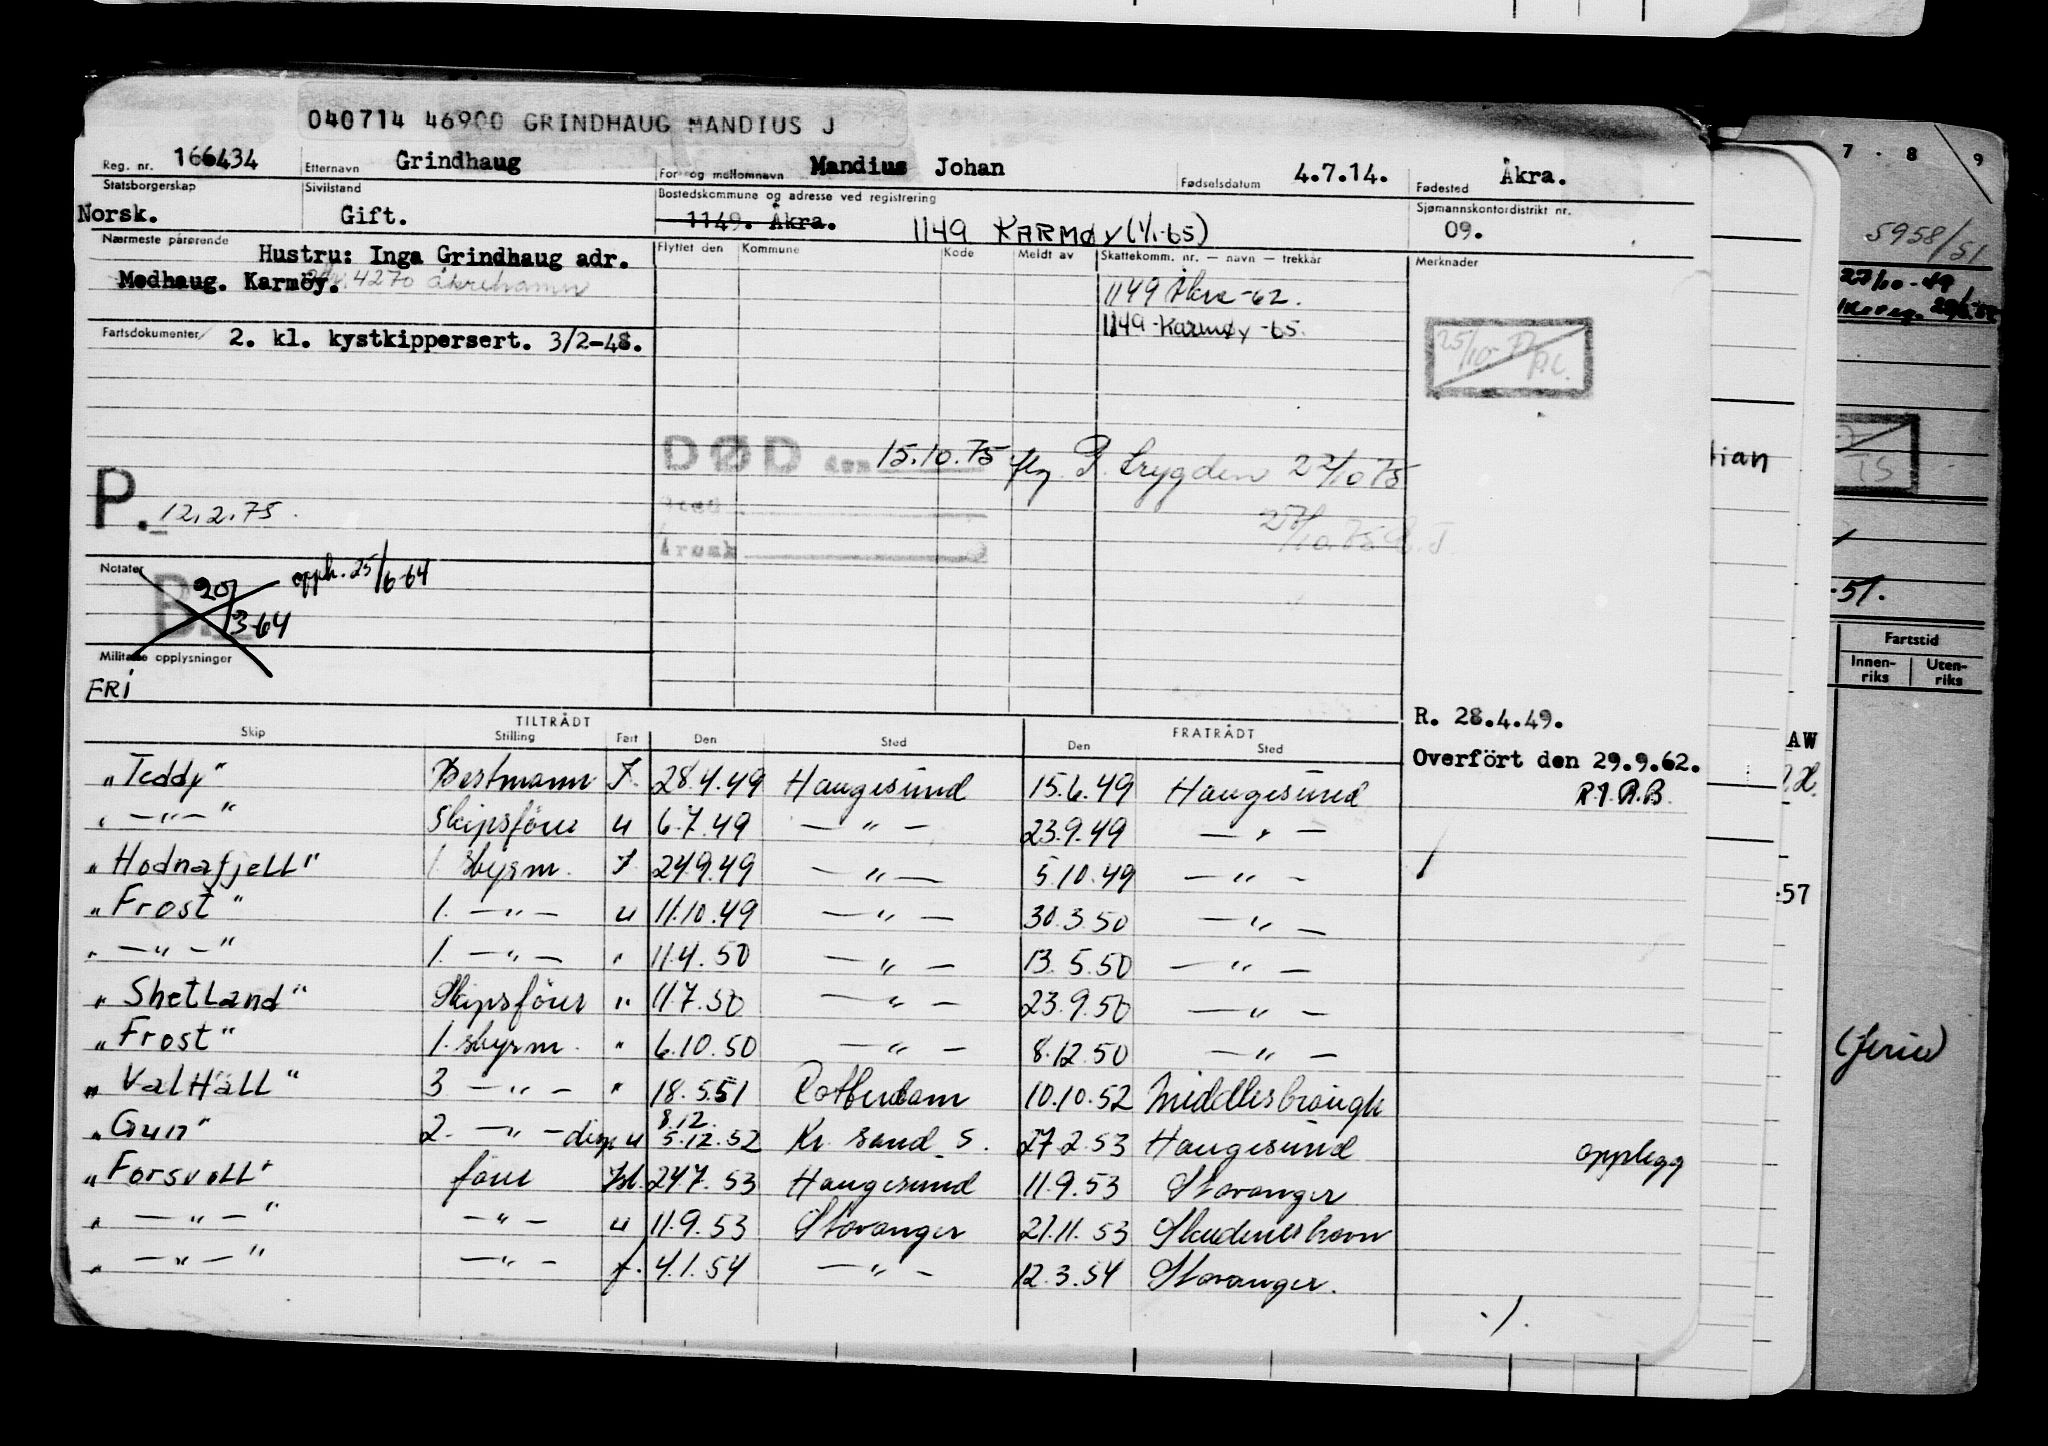 040714 46900 GRINDHAUG MANDIUS J
Reg. nr. 166434 Etternavn Grindhaug For og mellomnavn Mandius Johan Fødselsdatum 4.7.14. Fødested Åkra.
Statsborgerskap Norsk. Sivilstand Gift. Bostedskommune og adresse ved registrering 1149. Åkra. 1149 KARMØY (1/1-65) Sjømannskontordistrikt nr. 09.
Nærmeste pårørende Hustru: Inga Grindhaug adr.
Medhaug. Karmöy. 4270 Åkrehamn
Flyttet den Kommune Kode Meldt av Skattekomm. nr. — navn — trekkår Merknader
1149 Åkra -62.
1149 - Karmøy -65.
Fartsdokumenter 2. kl. kystkippersert. 3/2-48.
DØD den 15.10.75 flg. R. trygden 22/10 75
Sted
Årsak
P. 12.2.75.
Notater B. 20/3-64 opph. 25/6-64
Militære opplysninger
FRI
R. 28.4.49.
Overfört den 29.9.62.
TILTRÅDT FRATRÅDT
Skip Stilling Fart Den Sted Den Sted
"Teddy" Bestmann J. 28.4.49 Haugesund 15.6.49 Haugesund
" — " — " Skipsförer u 6.7.49 — " — 23.9.49 — " —
"Hodnafjell" 1. styrm. J 24.9.49 — " — 5.10.49 — " —
"Frost" 1. — " — u 11.10.49 — " — 30.3.50 — " —
" — " — " 1. — " — " 11.4.50 — " — 13.5.50 — " —
"Shetland" Skipsförer " 11.7.50 — " — 23.9.50 — " —
"Frost" 1. styrm. " 6.10.50 — " — 8.12.50 — " —
"Valhall" 3 — " — " 18.5.51 Rotterdam 10.10.52 Middlesbrough
"Gun" 2. — " — disp u 8.12. 5.12.52 Kr. sand S. 27.2.53 Haugesund opplegg
"Forsvoll" förer 24.7.53 Haugesund 11.9.53 Stavanger
" — " — " — " — u 11.9.53 Stavanger 21.11.53 Skudeneshavn
" — " — " — " — f. 4.1.54 — " — 12.3.54 Stavanger.
./.
7 . 8 9
5958/51
27/10-49
tian
-51.
Fartstid
Innen-riks Uten-riks
AW
-57